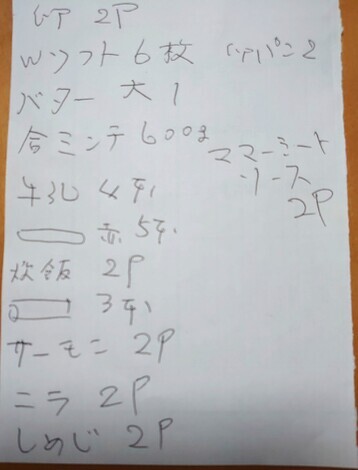 2P
Wソフト 6枚 パン2
バター 大 1
合ミンチ 600g
ママーミート
ソース
2P
牛乳 4
赤 5
炊飯 2P
3
サーモン 2P
ニラ 2P
しめじ 2P